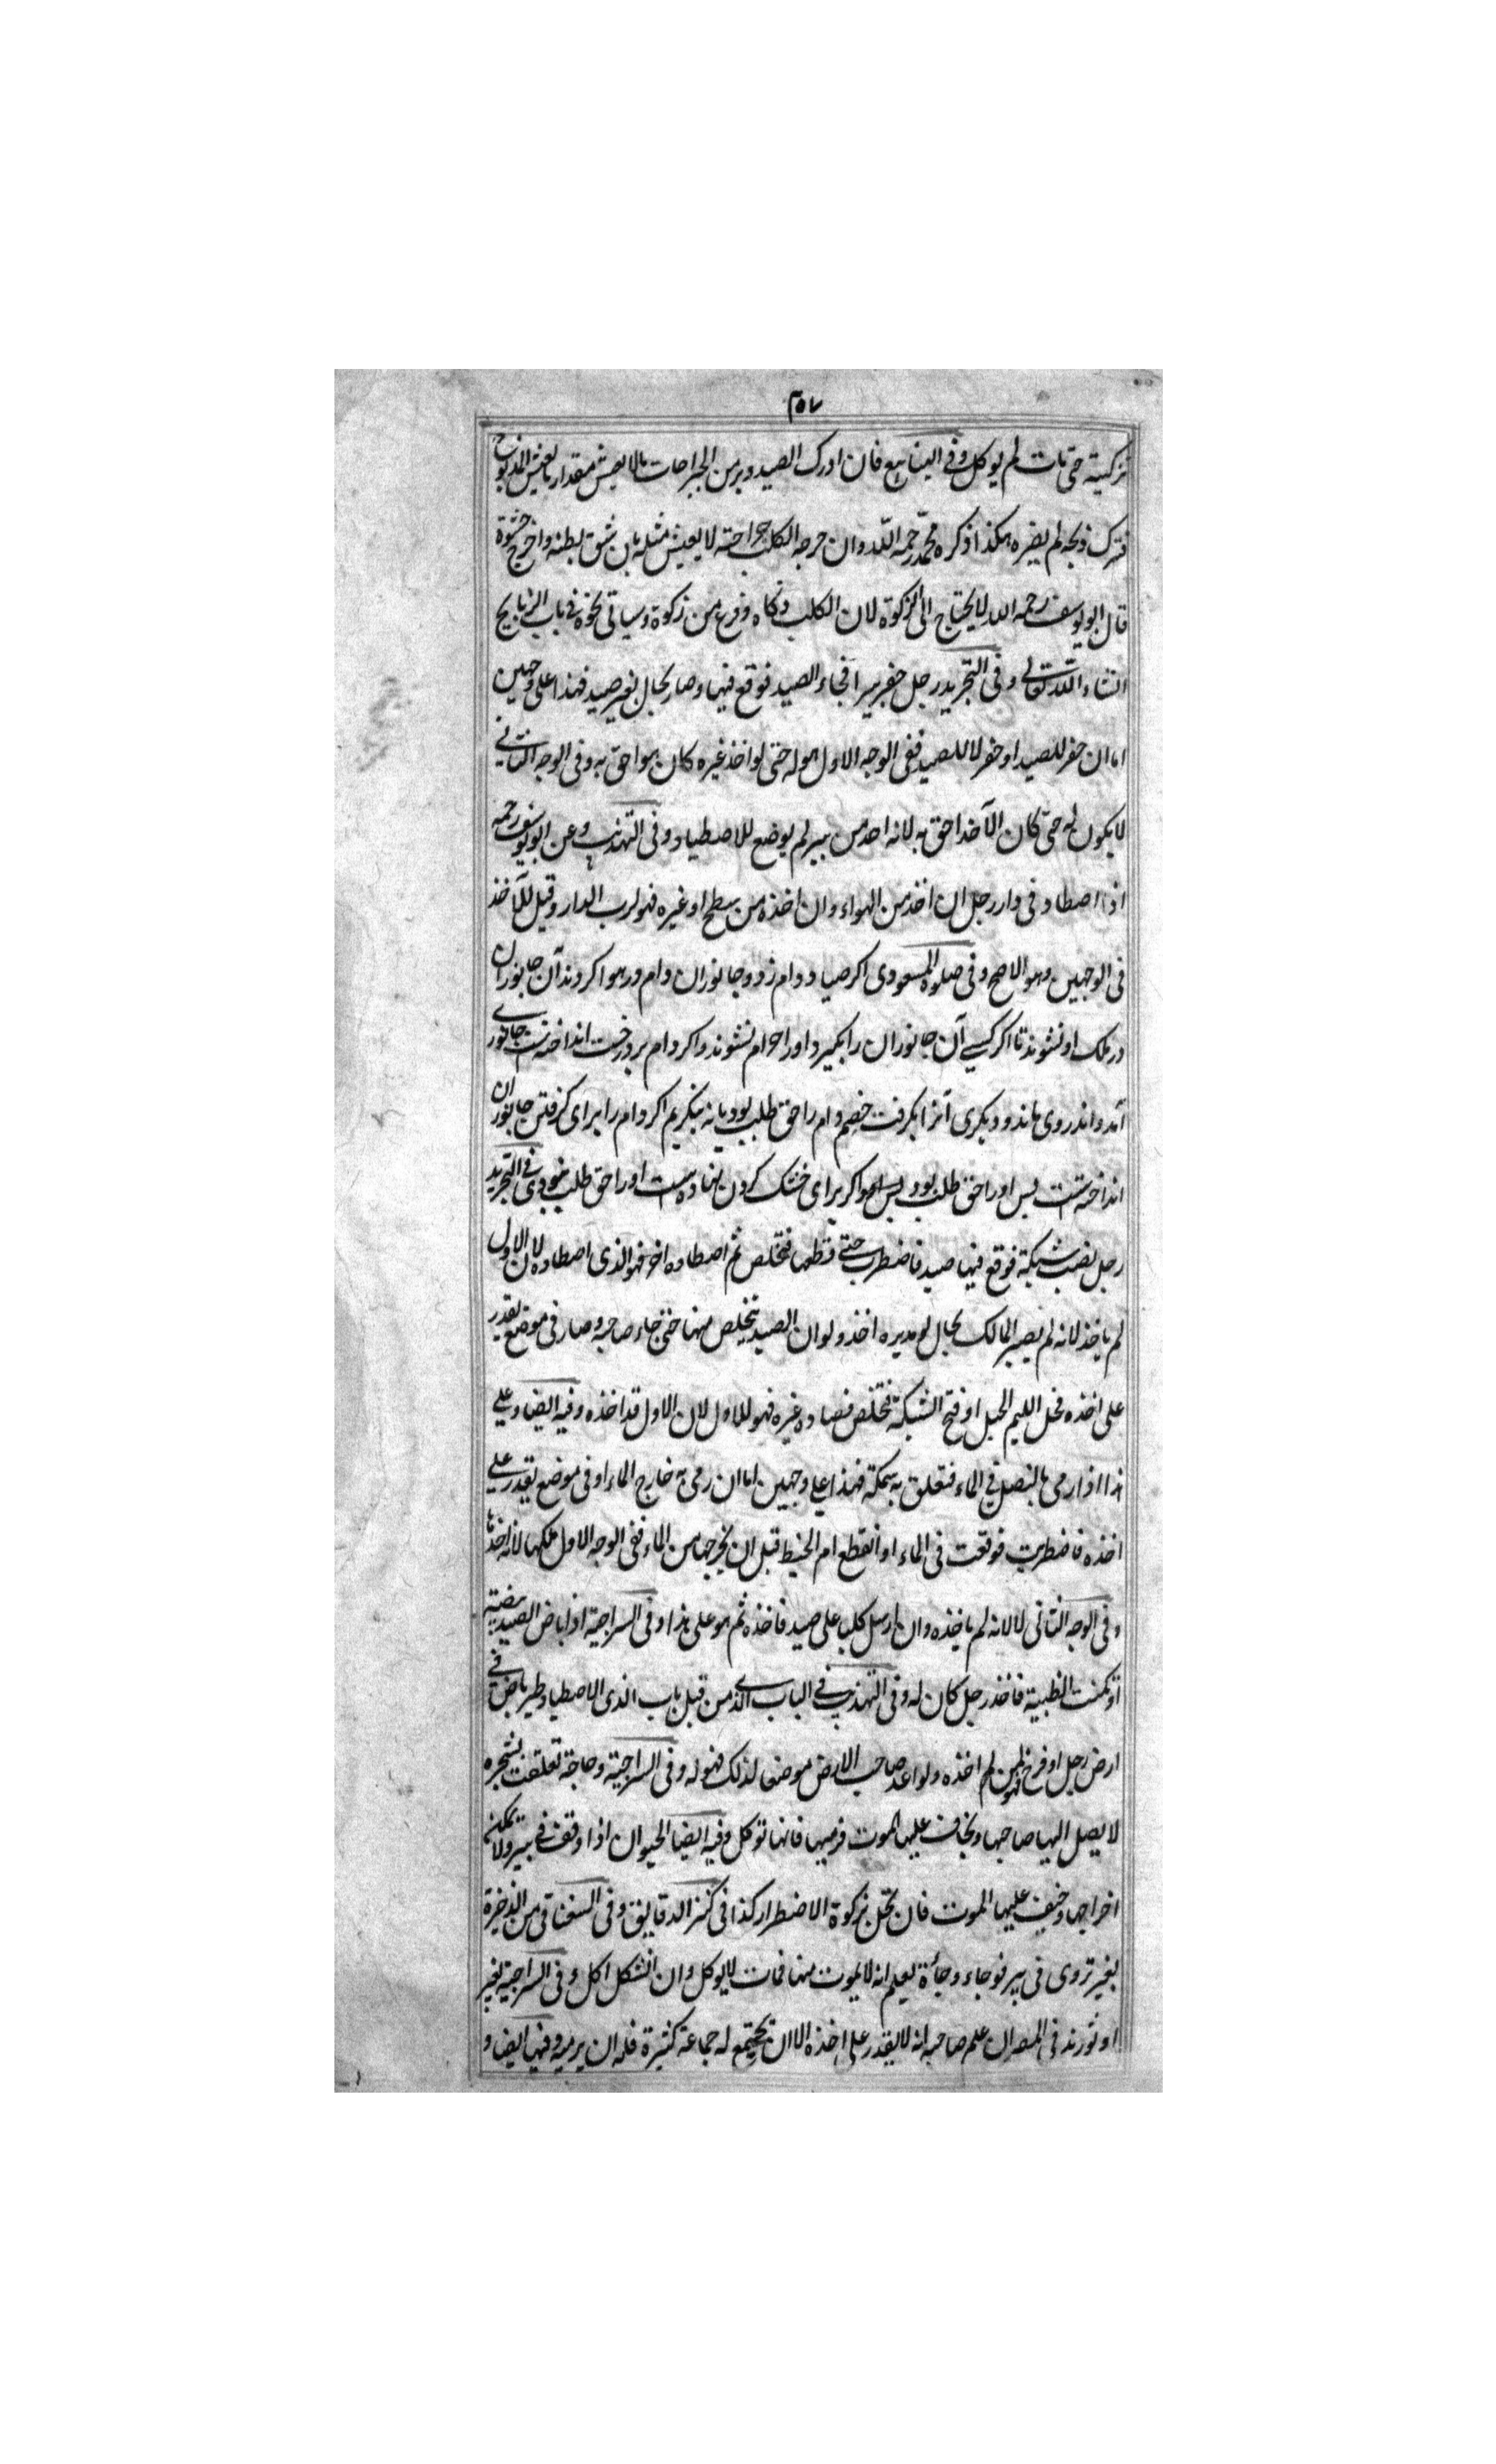 ٣٥٧
تزكيته حتى مات لم يوكل وفى الينابيع فان ادرك الصيد وبه من الجراحات مالا يعيش مقدار ما يعيش المذبوح
فترك ذبحه لم يضره هكذا ذكره محمد رحمه الله وان جرحه الكلب جراحته لا يعيش مثله بان شق بطنه واخرج حشوة
قال ابو يوسف رحمه الله لا يحتاج الى الزكوة لان الكلب ذكاه وفرغ من زكوة وسياتى نحوه فى باب الذبايح
انشاء الله تعالى وفى التجريد رجل حفر بيرا فجاء الصيد فوقع فيها وصار بحال بغير صيد فهذا على وجهين
اما ان حفر للصيد او حفر لا للصيد ففى الوجه الاول هو له حتى لو اخذ غيره كان هو احق به وفى الوجه الثانى
لا يكون له حتى كان الآخذ احق به لانه اخذ من بير لم يوضع للاصطياد وفى التهذيب وعن ابو يوسف رحمه
اذا اصطاد فى دار رجل ان اخذ من الهواء وان اخذه من سطح او غيره فهو لرب الدار وقيل للآخذ
فى الوجهين وهو الاصح وفى صلوة المسعودى اكر صياد دام زد و جانوران دام در هوا كردند آن جانوران
در ملك او نشوند تا اكر كسى آن جانوران را بكيرد او را حرام نشوند و اكر دام بر درخت انداخته است جانورى
آمد و اندر وى ماند و ديكرى آنرا بكرفت خصم دام را حق طلب بود يا نه بنكريم اكر دام را براى كرفتن جانوران
انداخته است پس او را حق طلب بود و اكر براى خشك كردن نهاده است او را حق طلب نبود وفى التجريد
رجل نصب شبكة فوقع فيها صيد فاضطرب حتى قطعها فتخلص ثم اصطاده اخر فهو الذى اصطاده لان الاول
لم ياخذ لانه لم يصير المالك بحال لو مد يده اخذ ولو ان الصيد يتخلص منها حتى جاء صاحبه وصار فى موضع يقدر
على اخذه فحل الحبل او فتح الشبكة فتخلص فصاده غيره فهو للاول لان الاول قد اخذه وفيه ايضا وعلى
هذا اذا رمى بالنصل فى الماء فتعلق به سمكة فهذا على وجهين اما ان رمى به خارج الماء او فى موضع يقدر على
اخذه فاضطربت فوقعت فى الماء او انقطع ام الخيط قبل ان يخرجها من الماء ففى الوجه الاول ملكها لانه اخذها
وفى الوجه الثانى لا لانه لم ياخذه وان ارسل كلبا على صيد فاخذه ثم هو على هذا وفى السراجية اذا باض الصيد بيضته
او تكمنت الظبية فاخذ رجل كان له وفى التهذيب فى الباب الذى من قبل باب الذى الاصطياد طير باض فى
ارض رجل او فرخ فهو لمن اخذه ولو اعد صاحب الارض موضعا لذلك فهو له وفى السراجية دجاجة تعلقت بشجره
لا يصل اليها صاحبها ويخاف عليها الموت فرميها فانها توكل وفيه ايضا الحيوان اذا وقعت فى بير ولا يمكن
اخراجها وخيف عليها الموت فان يحل بزكوة الاضطرار كذا فى كنز الدقايق وفى السغناقى من الذخيرة
بعير تردى فى بير فوجاء وجأة يعلم انه لا يموت منها فمات لا يوكل وان اشكل اكل وفى السراجية بعير
او ثور ند فى المصر ان علم صاحبه انه لا يقدر على اخذه الا ان يجتمع له جماعة كثيرة فله ان يرميه وفيها ايضا و